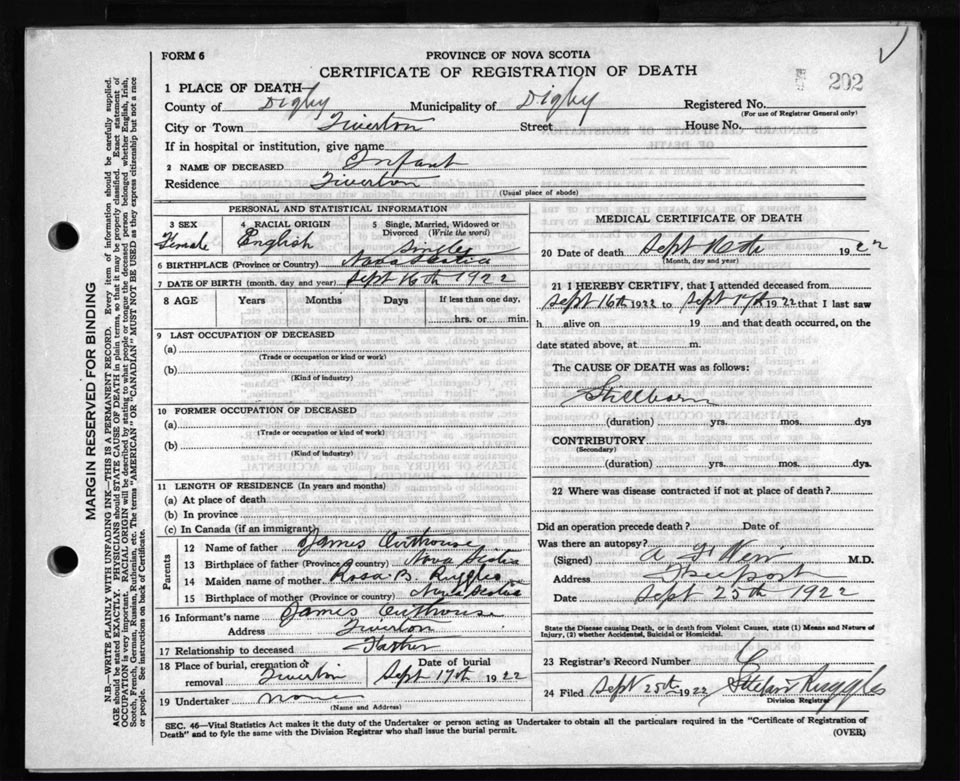 FORM 6
PROVINCE OF NOVA SCOTIA
CERTIFICATE OF REGISTRATION OF DEATH
202
1 PLACE OF DEATH—
County of Digby Municipality of Digby Registered No.
(For use of Registrar General only)
City or Town Tiverton Street House No.
If in hospital or institution, give name
2 NAME OF DECEASED Infant
Residence Tiverton
(Usual place of abode)
PERSONAL AND STATISTICAL INFORMATION
3 SEX 4 RACIAL ORIGIN 5 Single, Married, Widowed or Divorced (Write the word)
Female English Single
6 BIRTHPLACE (Province or Country) Nova Scotia
7 DATE OF BIRTH (month, day and year) Sept 16th 1922
8 AGE Years Months Days If less than one day,
hrs. or min.
9 LAST OCCUPATION OF DECEASED
(a)
(Trade or occupation or kind or work)
(b)
(Kind of industry)
10 FORMER OCCUPATION OF DECEASED
(a)
(Trade or occupation or kind of work)
(b)
(Kind of industry)
11 LENGTH OF RESIDENCE (In years and months)
(a) At place of death
(b) In province
(c) In Canada (if an immigrant)
Parents
12 Name of father James Outhouse
13 Birthplace of father (Province or country) Nova Scotia
14 Maiden name of mother Rosa B. Ruggles
15 Birthplace of mother (Province or country) Nova Scotia
16 Informant's name James Outhouse
Address Tiverton
17 Relationship to deceased Father
18 Place of burial, cremation or removal Tiverton Date of burial Sept 17th 1922
19 Undertaker none
(Name and Address)
MEDICAL CERTIFICATE OF DEATH
20 Date of death Sept 16th 1922
(Month, day and year)
21 I HEREBY CERTIFY, that I attended deceased from
Sept 16th 1922 to Sept 17th 1922 that I last saw
h alive on 19 and that death occurred, on
date stated above, at m.
The CAUSE OF DEATH was as follows:
Stillborn
(duration) yrs. mos. dys
CONTRIBUTORY
(Secondary)
(duration) yrs. mos. dys.
22 Where was disease contracted if not at place of death?
Did an operation precede death? Date of
Was there an autopsy?
(Signed) A M.D.
Address Freeport
Date Sept 25th 1922
State the Disease causing Death, or in death from Violent Causes, state (1) Means and Nature of
Injury, (2) whether Accidental, Suicidal or Homicidal.
23 Registrar's Record Number
24 Filed Sept 25th 1922 Ruggles
Division Registrar
SEC. 46—Vital Statistics Act makes it the duty of the Undertaker or person acting as Undertaker to obtain all the particulars required in the "Certificate of Registration of
Death" and to fyle the same with the Division Registrar who shall issue the burial permit.
(OVER)
MARGIN RESERVED FOR BINDING
N.B.—WRITE PLAINLY WITH UNFADING INK—THIS IS A PERMANENT RECORD. Every item of information should be carefully supplied.
AGE should be stated EXACTLY. PHYSICIANS should STATE CAUSE OF DEATH in plain terms, so that it may be properly classified. Exact statement of
OCCUPATION is very important. RACIAL ORIGIN will be described by stating to what people or tongue the deceased person belonged whether English, Irish,
Scotch, French, German, Russian, Ruthenian, etc. The terms "AMERICAN" OR "CANADIAN" MUST NOT BE USED as they express citizenship but not a race
or people. See instructions on back of Certificate.